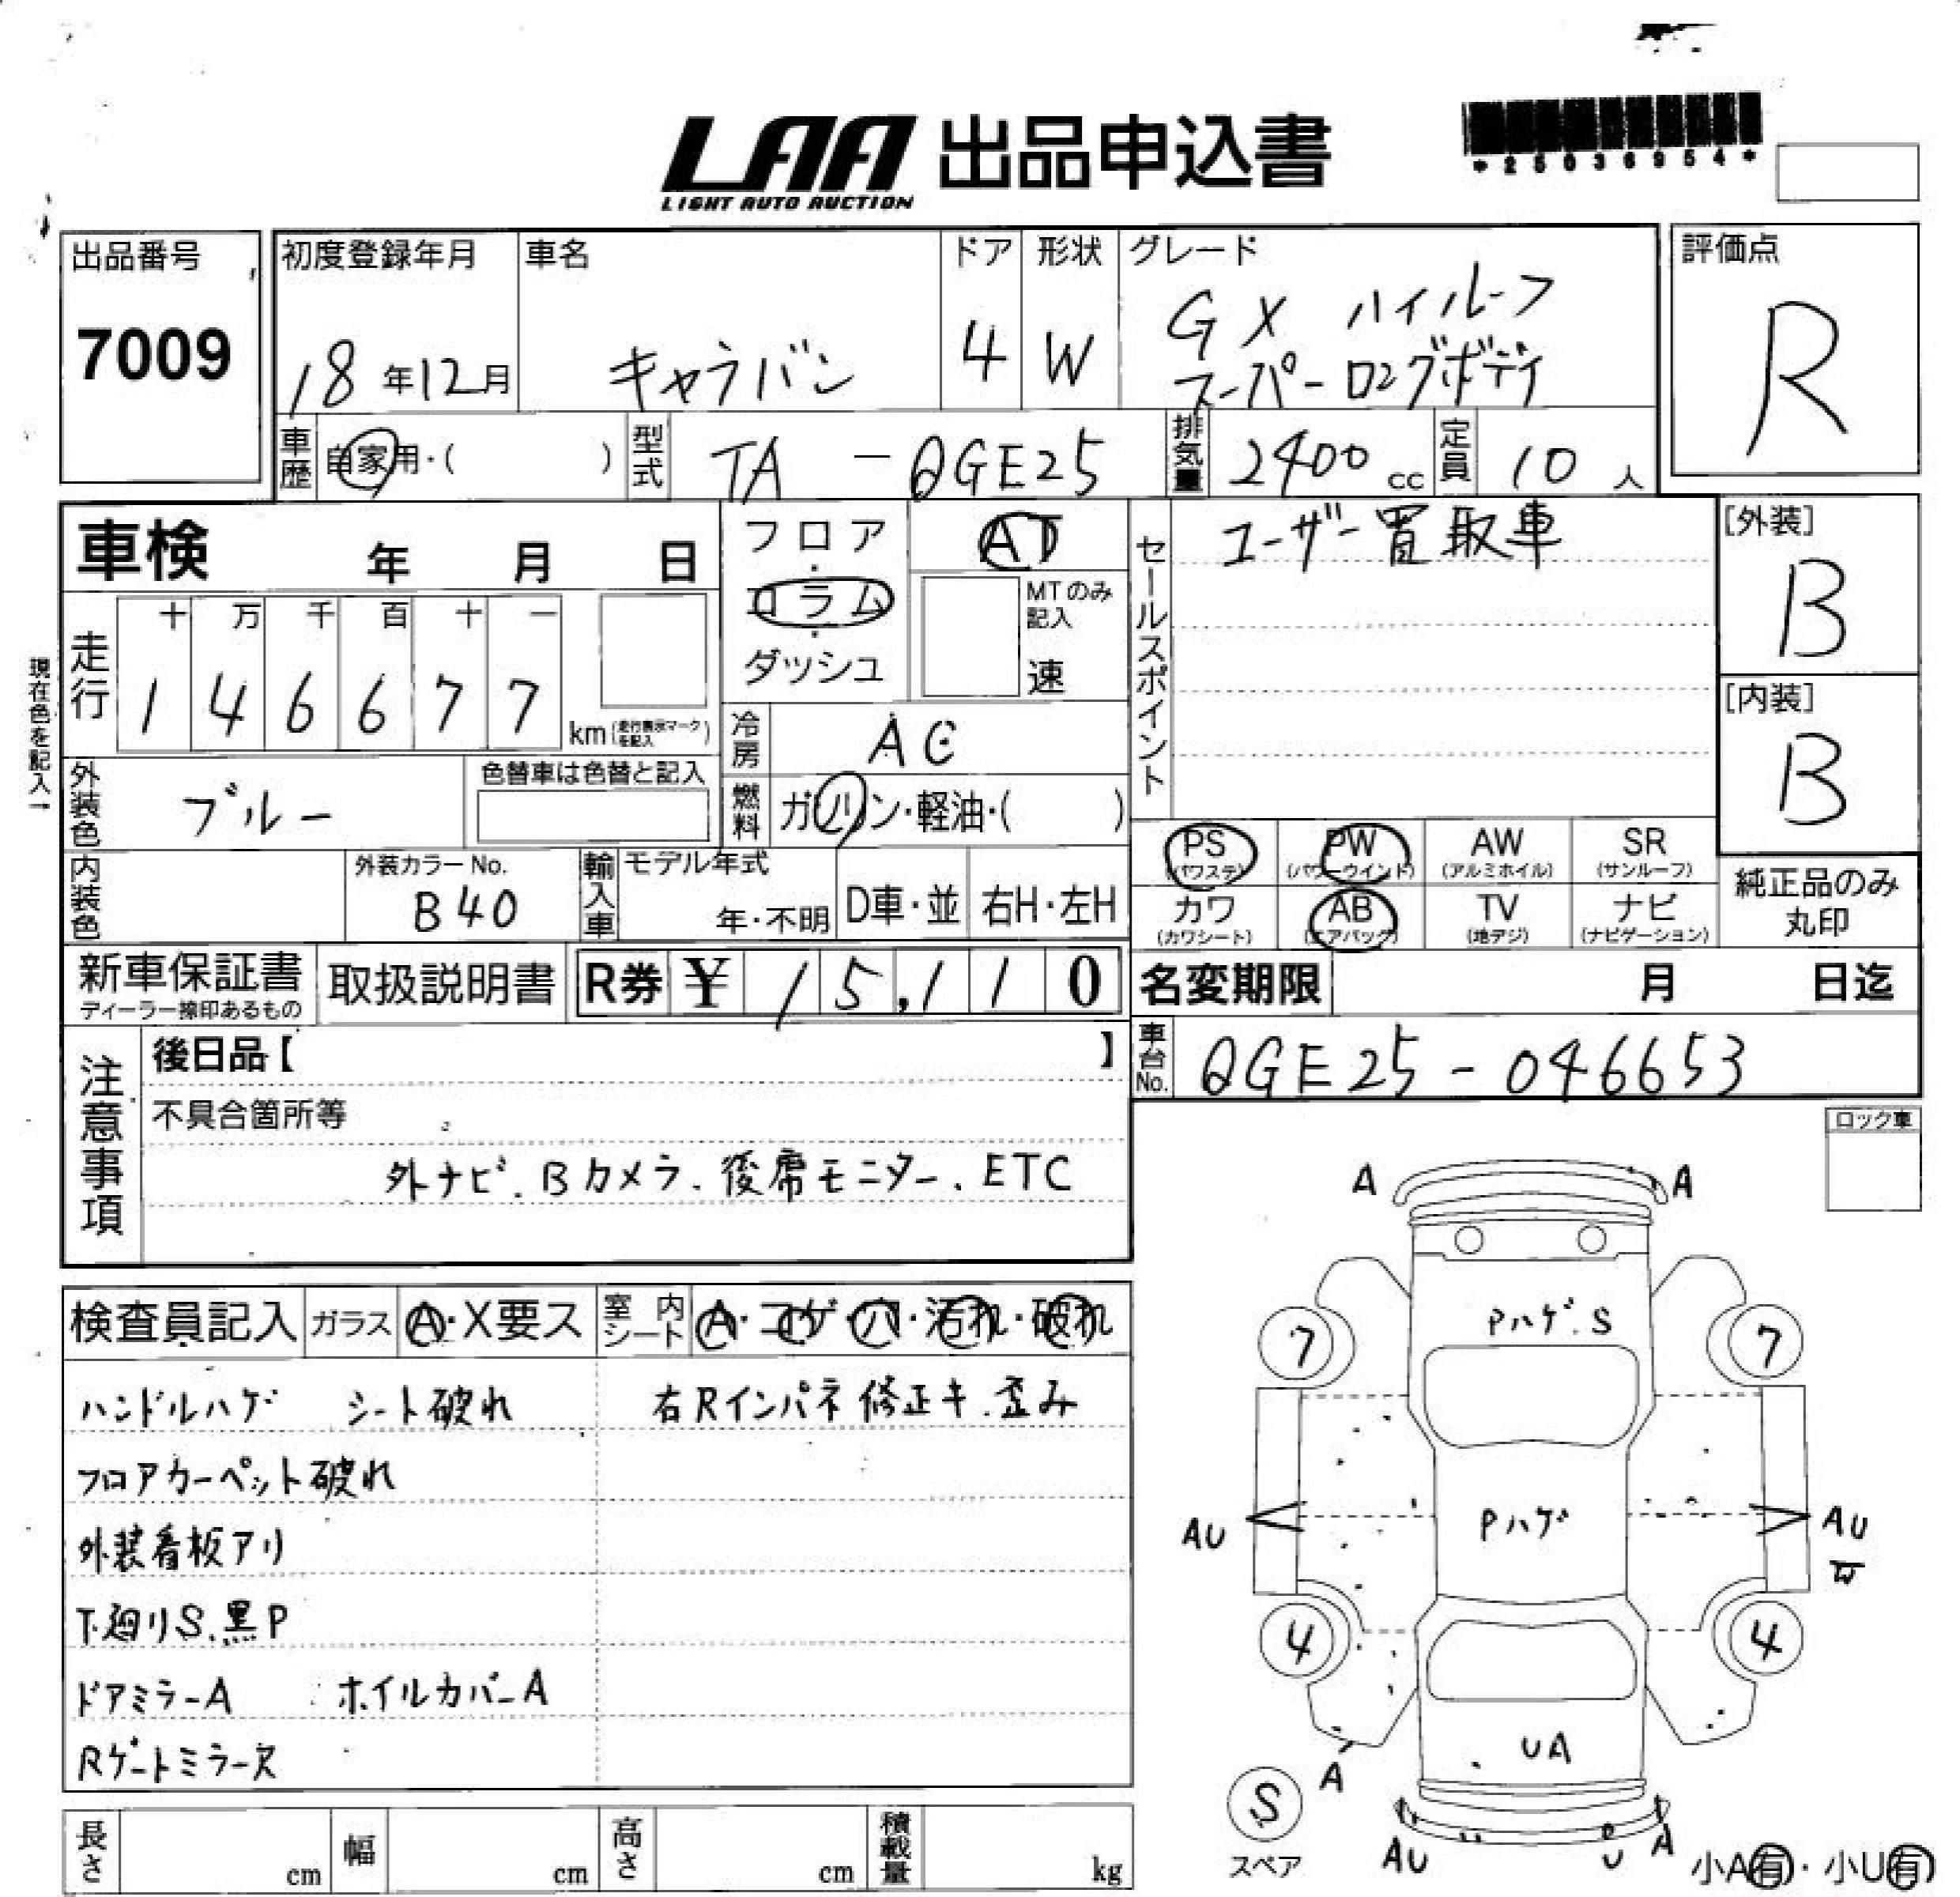 LAA 出品申込書
LIGHT AUTO AUCTION
*25036954*
出品番号
7009
初度登録年月
18年12月
車名
キャラバン
ドア
4
形状
W
グレード
GX ハイルーフ
スーパーロングボディ
評価点
R
車歴 自家用・( )
型式 TA－QGE25
排気量 2400cc
定員 10人
車検 年 月 日
フロア・コラム・ダッシュ
AT
MTのみ記入
速
セールスポイント
ユーザー買取車
[外装]
B
現在色を記入→
走行 十 万 千 百 十 一
146677
km(走行表示マークを記入)
[内装]
B
冷房 AC
外装色 ブルー
色替車は色替と記入
燃料 ガソリン・軽油・( )
PS (パワステ)
PW (パワーウインド)
AW (アルミホイル)
SR (サンルーフ)
カワ (カワシート)
AB (エアバック)
TV (地デジ)
ナビ (ナビゲーション)
純正品のみ
丸印
内装色
外装カラーNo.
B40
輸入車 モデル年式
年・不明
D車・並
右H・左H
新車保証書
ディーラー捺印あるもの
取扱説明書
R券 ¥ 15,110
名変期限 月 日迄
注意事項
後日品【 】
車台No. QGE25-046653
不具合箇所等
外ナビ.Bカメラ.後席モニター.ETC
ロック車
検査員記入 ガラス A・X要ス
室内シート A・コゲ・穴・汚れ・破れ
ハンドルハゲ シート破れ
右Rインパネ修正キ.歪み
フロアカーペット破れ
外装看板アリ
下廻りS.黒P
ドアミラーA ホイルカバーA
Rゲートミラーヌ
A A
Pハゲ.S
7 7
Pハゲ
AU AU
4 4
UA
A
S
スペア
AU U A
小A有・小U有
長さ cm
幅 cm
高さ cm
積載量 kg